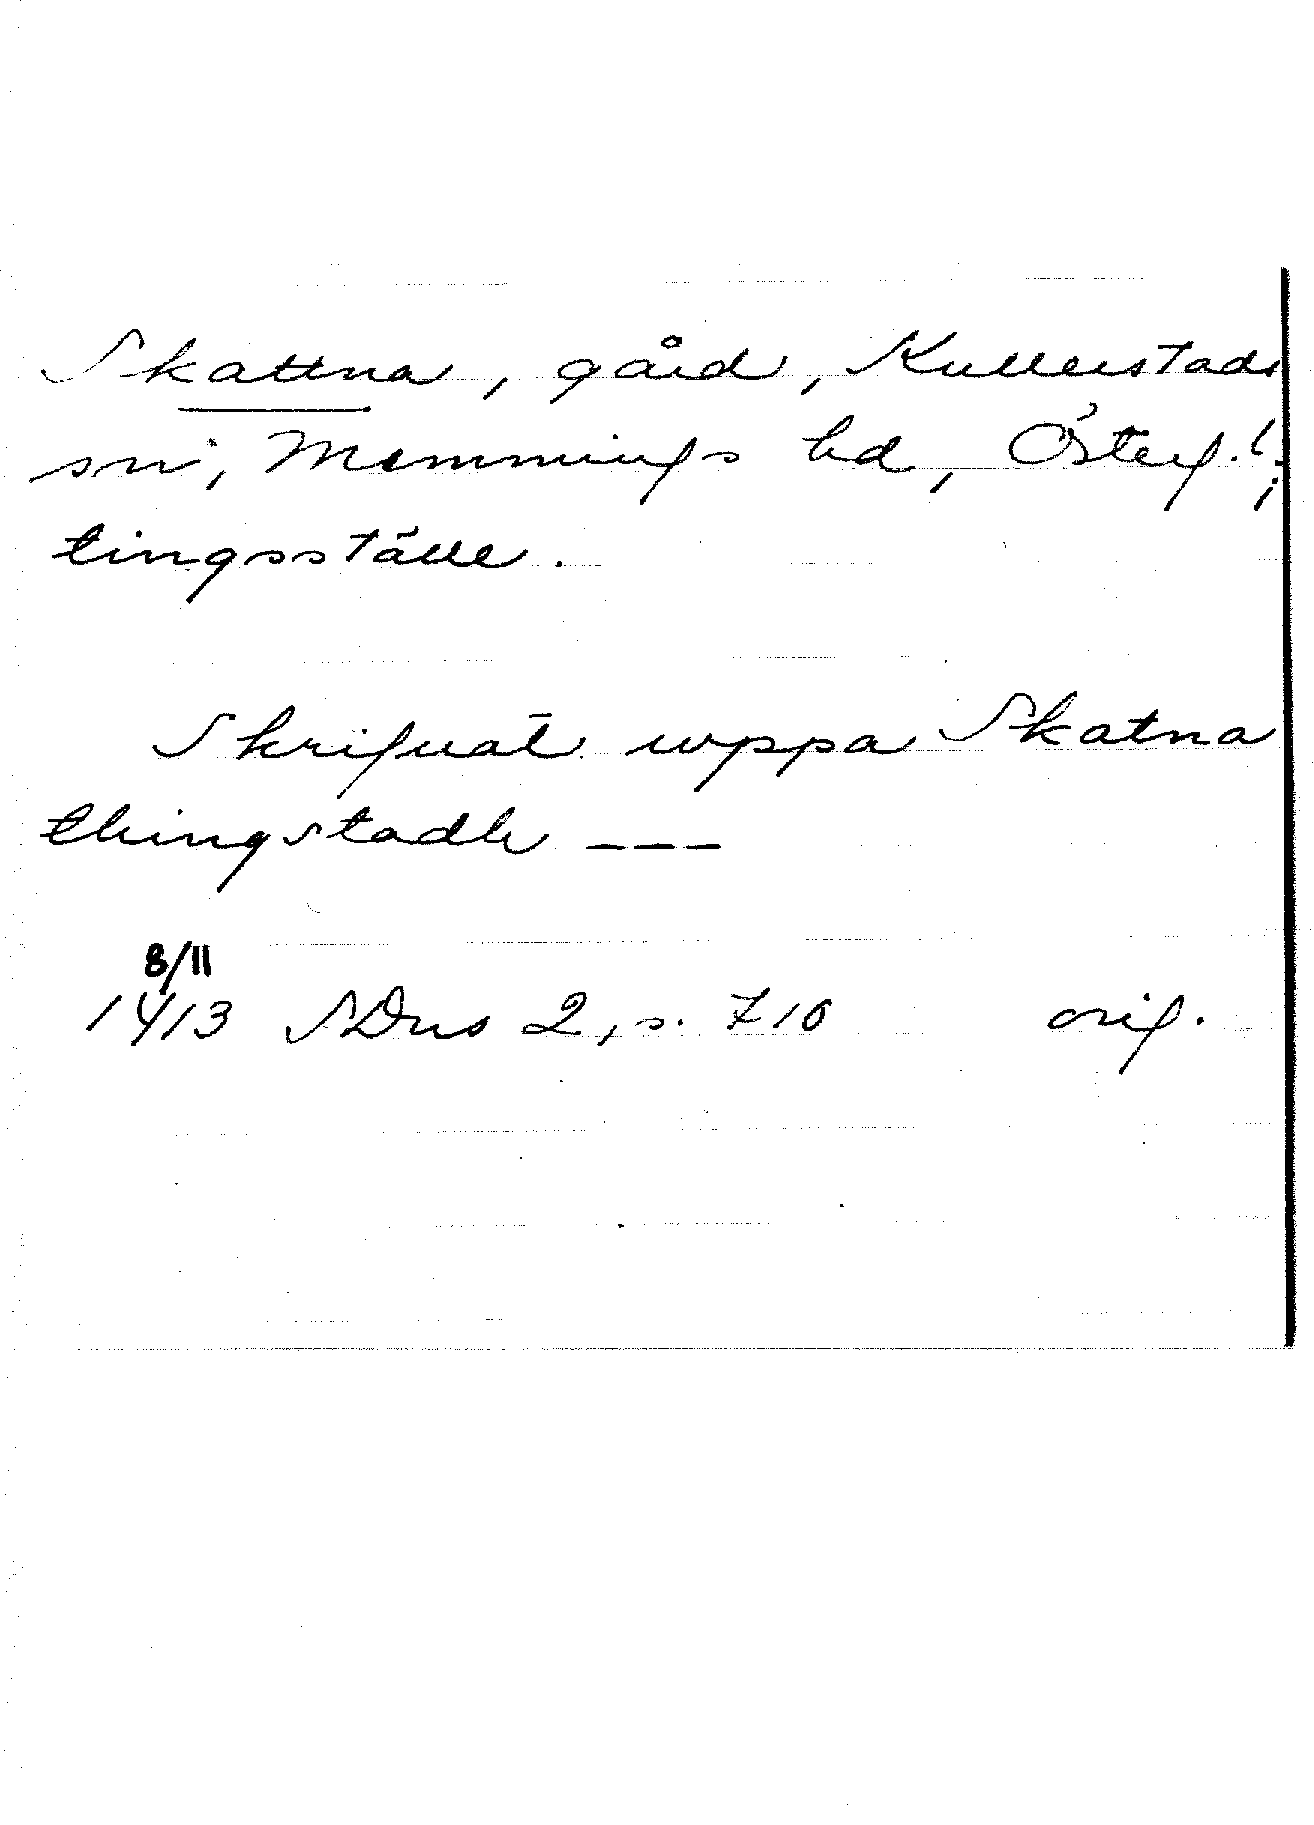 Skattna, gård, Kullerstads
sn, Memmings hd, Österg. ;
tingsställe.
Skrifuat uppa Skatna
thingstadh ---
8/11
1413 SDns 2, s. 710 orig.